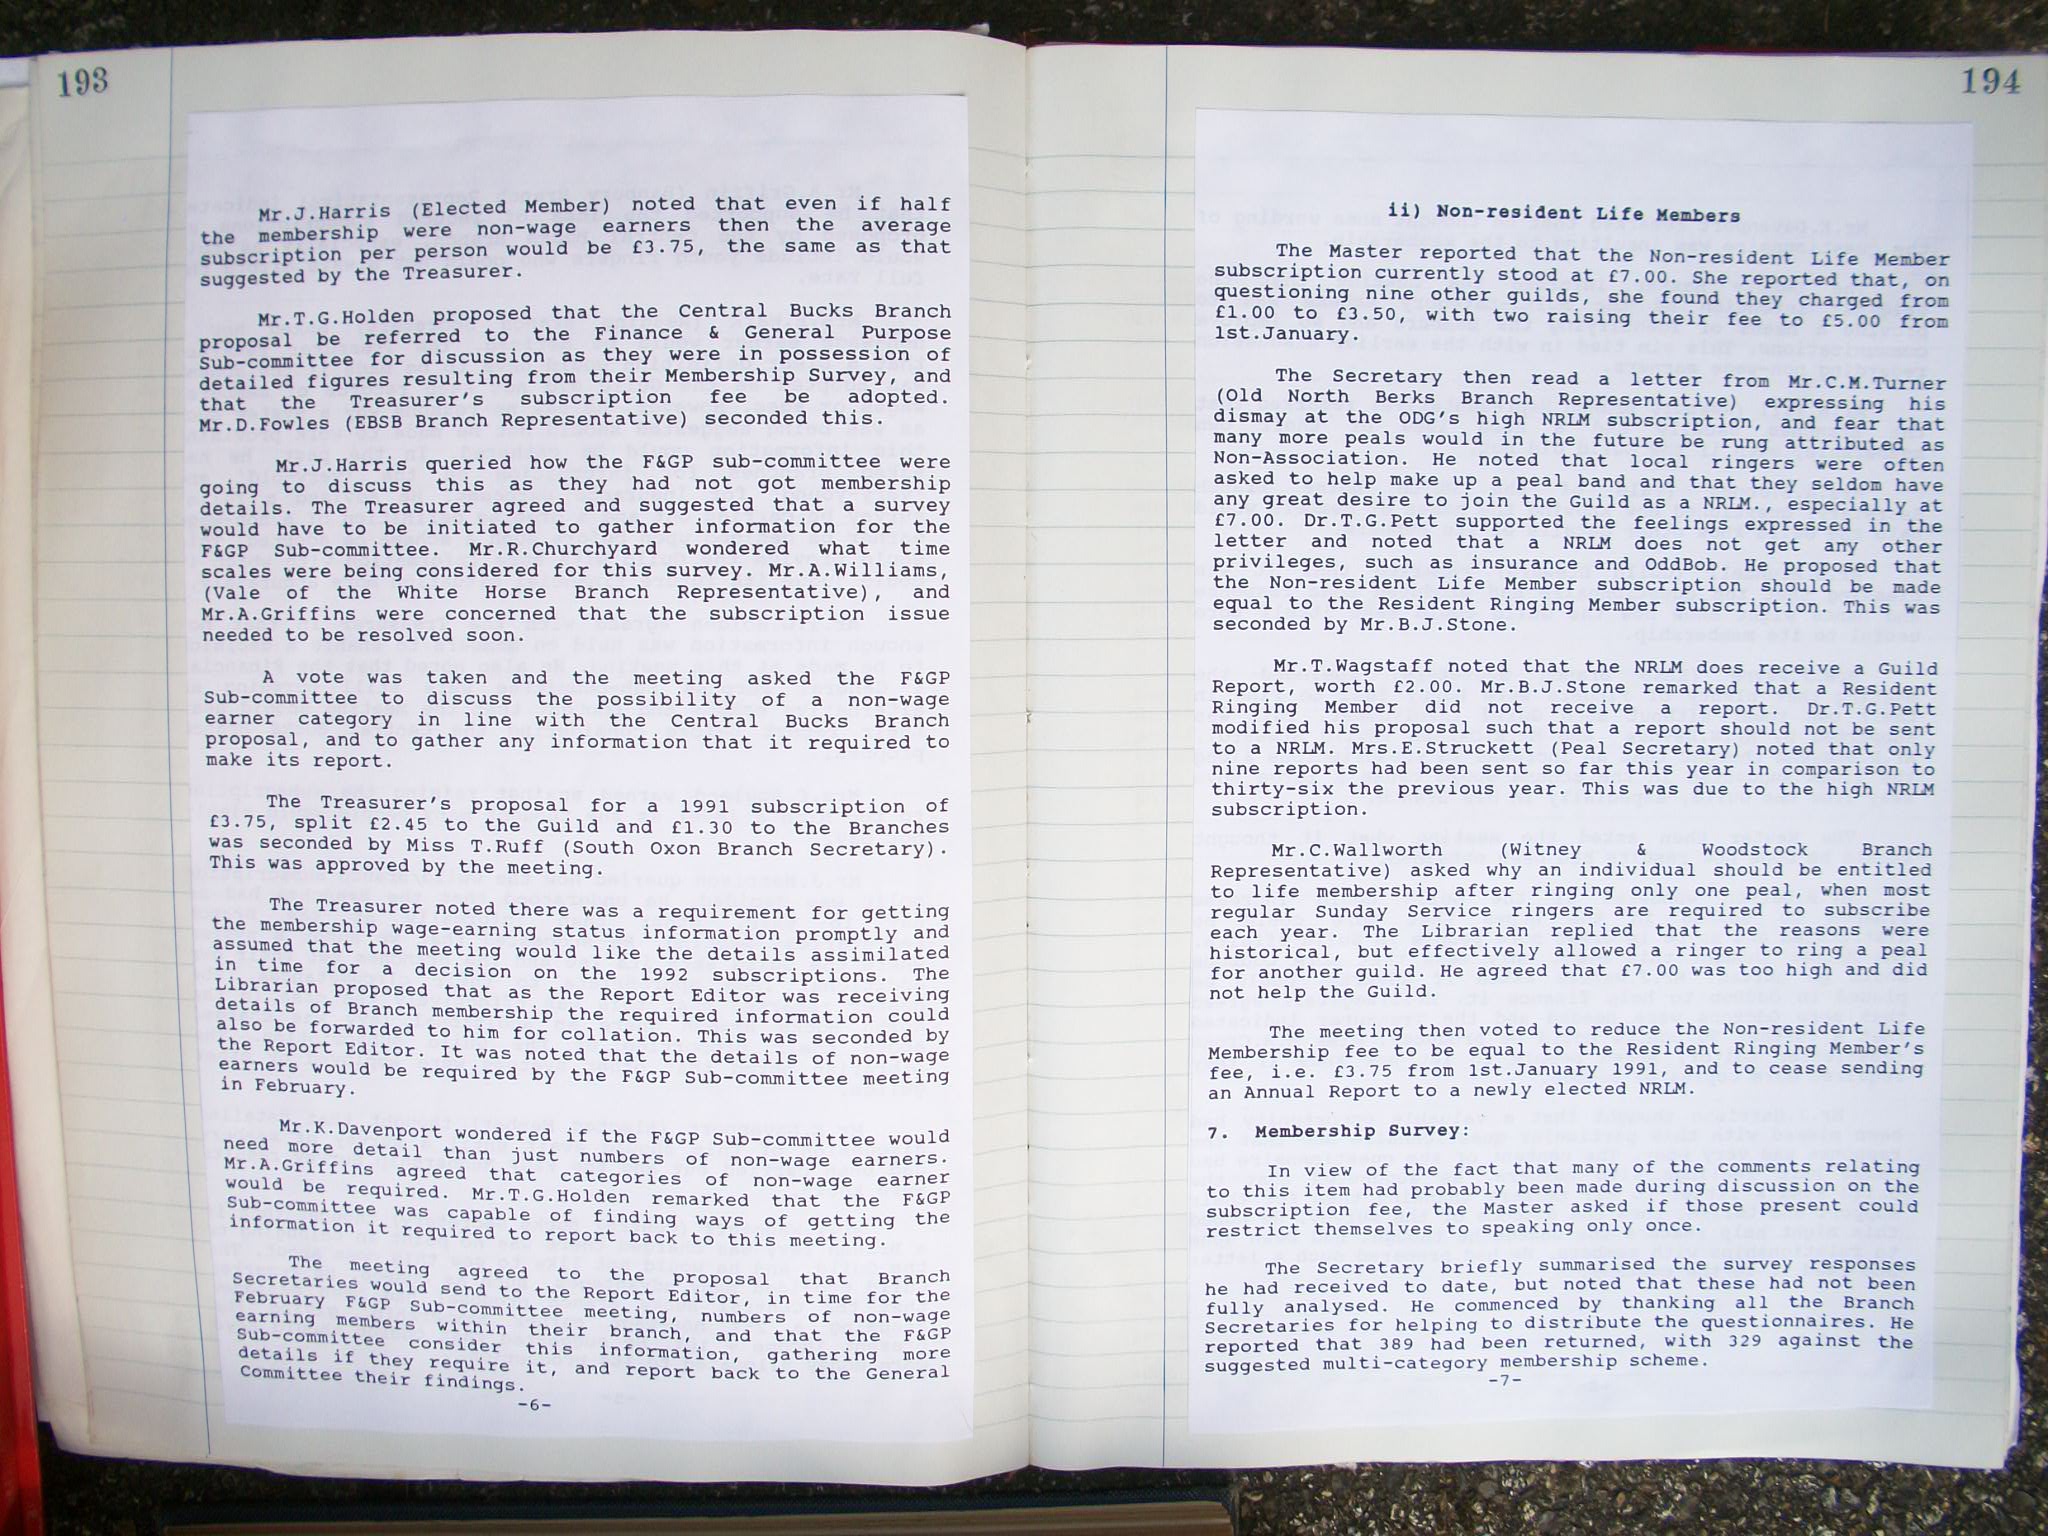 193
Mr.J.Harris (Elected Member) noted that even if half
the membership were non-wage earners then the average
subscription per person would be £3.75, the same as that
suggested by the Treasurer.
Mr.T.G.Holden proposed that the Central Bucks Branch
proposal be referred to the Finance & General Purpose
Sub-committee for discussion as they were in possession of
detailed figures resulting from their Membership Survey, and
that the Treasurer's subscription fee be adopted.
Mr.D.Fowles (EBSB Branch Representative) seconded this.
Mr.J.Harris queried how the F&GP sub-committee were
going to discuss this as they had not got membership
details. The Treasurer agreed and suggested that a survey
would have to be initiated to gather information for the
F&GP Sub-committee. Mr.R.Churchyard wondered what time
scales were being considered for this survey. Mr.A.Williams,
(Vale of the White Horse Branch Representative), and
Mr.A.Griffins were concerned that the subscription issue
needed to be resolved soon.
A vote was taken and the meeting asked the F&GP
Sub-committee to discuss the possibility of a non-wage
earner category in line with the Central Bucks Branch
proposal, and to gather any information that it required to
make its report.
The Treasurer's proposal for a 1991 subscription of
£3.75, split £2.45 to the Guild and £1.30 to the Branches
was seconded by Miss T.Ruff (South Oxon Branch Secretary).
This was approved by the meeting.
The Treasurer noted there was a requirement for getting
the membership wage-earning status information promptly and
assumed that the meeting would like the details assimilated
in time for a decision on the 1992 subscriptions. The
Librarian proposed that as the Report Editor was receiving
details of Branch membership the required information could
also be forwarded to him for collation. This was seconded by
the Report Editor. It was noted that the details of non-wage
earners would be required by the F&GP Sub-committee meeting
in February.
Mr.K.Davenport wondered if the F&GP Sub-committee would
need more detail than just numbers of non-wage earners.
Mr.A.Griffins agreed that categories of non-wage earner
would be required. Mr.T.G.Holden remarked that the F&GP
Sub-committee was capable of finding ways of getting the
information it required to report back to this meeting.
The meeting agreed to the proposal that Branch
Secretaries would send to the Report Editor, in time for the
February F&GP Sub-committee meeting, numbers of non-wage
earning members within their branch, and that the F&GP
Sub-committee consider this information, gathering more
details if they require it, and report back to the General
Committee their findings.
-6-
194
ii) Non-resident Life Members
The Master reported that the Non-resident Life Member
subscription currently stood at £7.00. She reported that, on
questioning nine other guilds, she found they charged from
£1.00 to £3.50, with two raising their fee to £5.00 from
1st.January.
The Secretary then read a letter from Mr.C.M.Turner
(Old North Berks Branch Representative) expressing his
dismay at the ODG's high NRLM subscription, and fear that
many more peals would in the future be rung attributed as
Non-Association. He noted that local ringers were often
asked to help make up a peal band and that they seldom have
any great desire to join the Guild as a NRLM., especially at
£7.00. Dr.T.G.Pett supported the feelings expressed in the
letter and noted that a NRLM does not get any other
privileges, such as insurance and OddBob. He proposed that
the Non-resident Life Member subscription should be made
equal to the Resident Ringing Member subscription. This was
seconded by Mr.B.J.Stone.
Mr.T.Wagstaff noted that the NRLM does receive a Guild
Report, worth £2.00. Mr.B.J.Stone remarked that a Resident
Ringing Member did not receive a report. Dr.T.G.Pett
modified his proposal such that a report should not be sent
to a NRLM. Mrs.E.Struckett (Peal Secretary) noted that only
nine reports had been sent so far this year in comparison to
thirty-six the previous year. This was due to the high NRLM
subscription.
Mr.C.Wallworth (Witney & Woodstock Branch
Representative) asked why an individual should be entitled
to life membership after ringing only one peal, when most
regular Sunday Service ringers are required to subscribe
each year. The Librarian replied that the reasons were
historical, but effectively allowed a ringer to ring a peal
for another guild. He agreed that £7.00 was too high and did
not help the Guild.
The meeting then voted to reduce the Non-resident Life
Membership fee to be equal to the Resident Ringing Member's
fee, i.e. £3.75 from 1st.January 1991, and to cease sending
an Annual Report to a newly elected NRLM.
7. Membership Survey:
In view of the fact that many of the comments relating
to this item had probably been made during discussion on the
subscription fee, the Master asked if those present could
restrict themselves to speaking only once.
The Secretary briefly summarised the survey responses
he had received to date, but noted that these had not been
fully analysed. He commenced by thanking all the Branch
Secretaries for helping to distribute the questionnaires. He
reported that 389 had been returned, with 329 against the
suggested multi-category membership scheme.
-7-